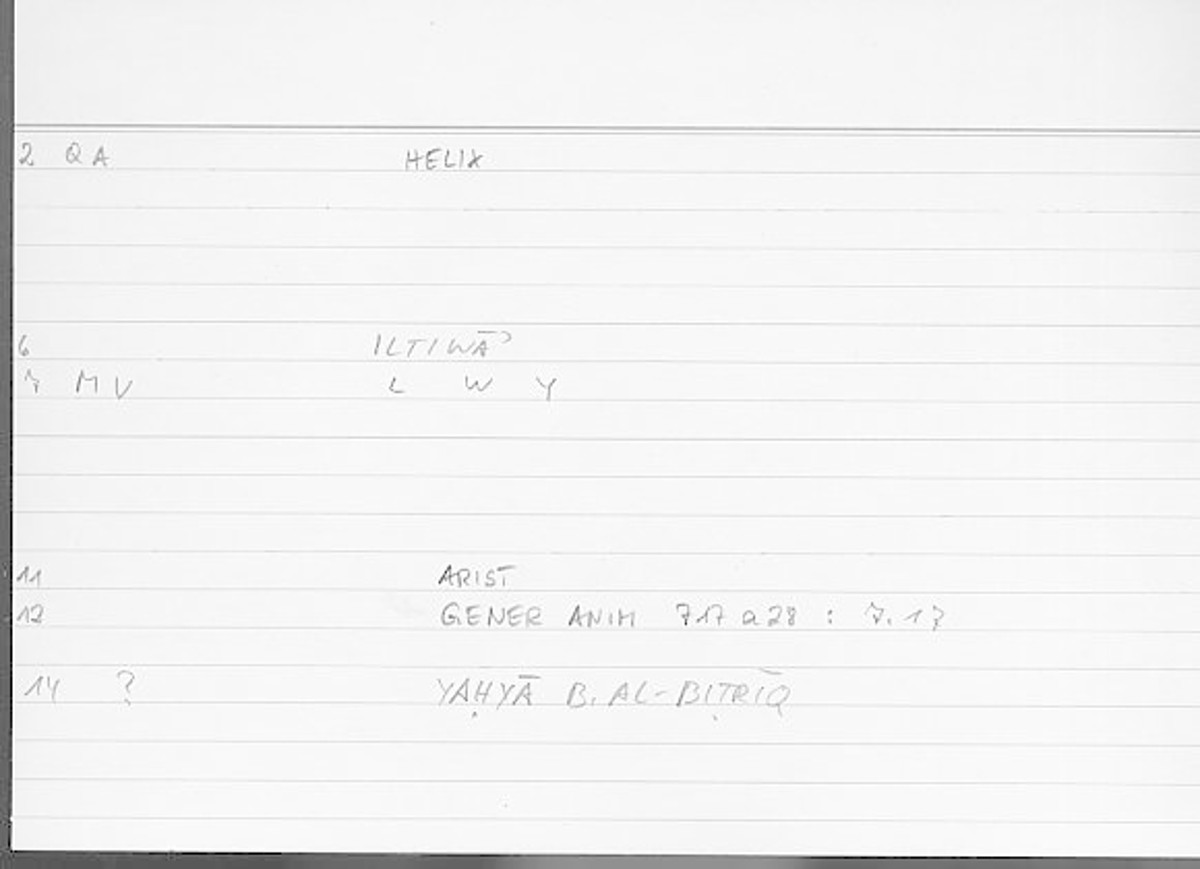 2 QA HELIX
6 ILTIWĀʾ
7 MV L W Y
11 ARIST
12 GENER ANIM 717 a 28 : 7.17
14 ? YAḤYĀ B. AL-BIṬRĪQ